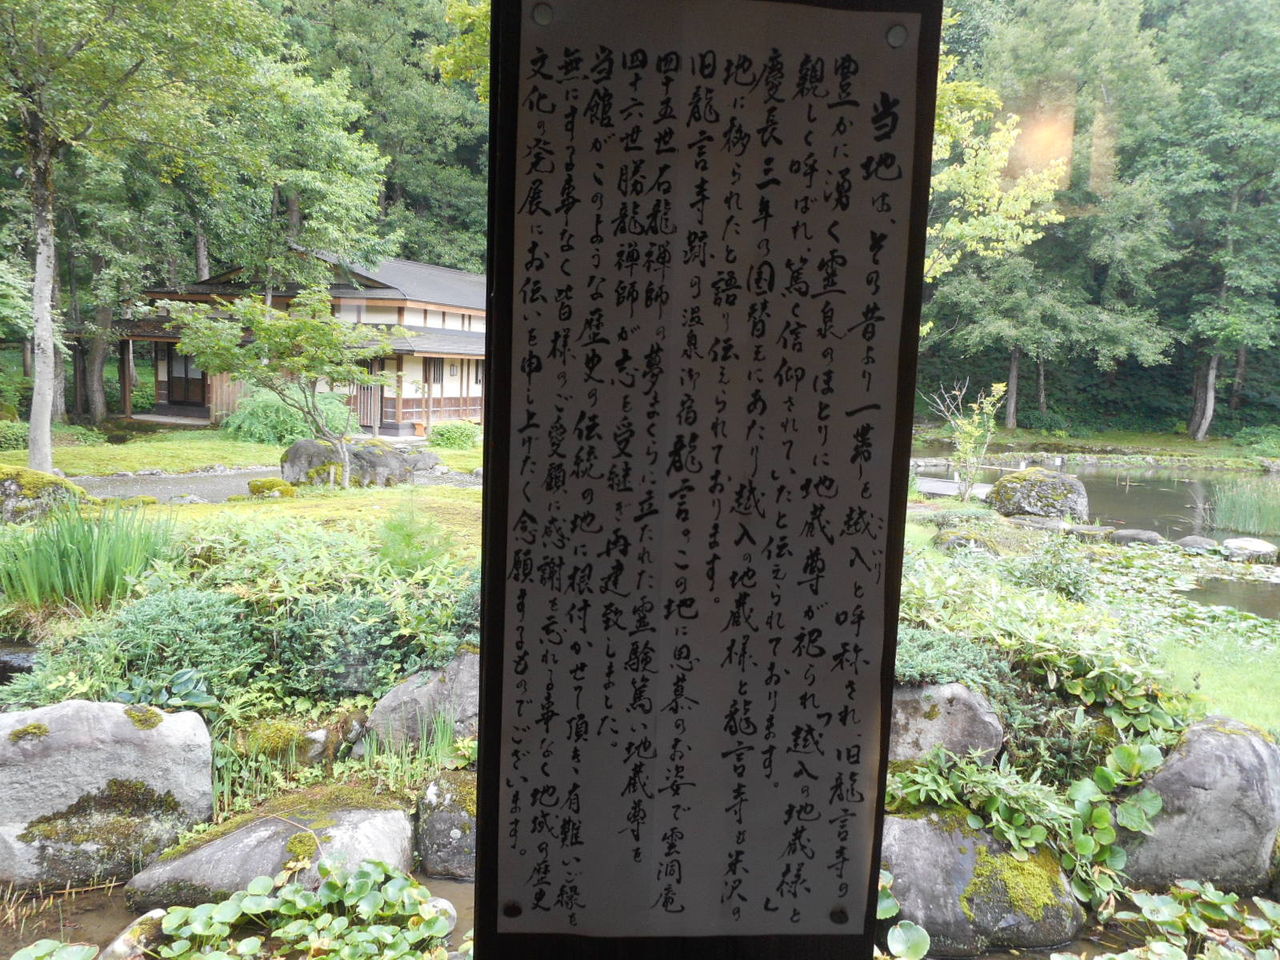 当地は、その昔より一帯を越入と呼称され、旧龍言寺の
豊かに湧く霊泉のほとりに地蔵尊が祀られ「越入の地蔵様」と
親しく呼ばれ、篤く信仰されていたと伝えられております。
慶長三年の国替えにあたり越入の地蔵様と龍言寺も米沢の
地に移られたと語り伝えられております。
旧龍言寺跡の温泉御宿龍言のこの地に思慕のお姿で雲洞庵
四十五世石龍禅師の夢まくらに立たれた霊験篤い地蔵尊を
四十六世勝龍禅師が志を受継ぎ再建致しました。
当館がこのような歴史の伝統の地に根付かせて頂き、有難いご縁を
無にする事なく皆様のご愛顧に感謝を忘れる事なく地域の歴史
文化の発展にお伝いを申し上げたく念願するものでございます。
こいり